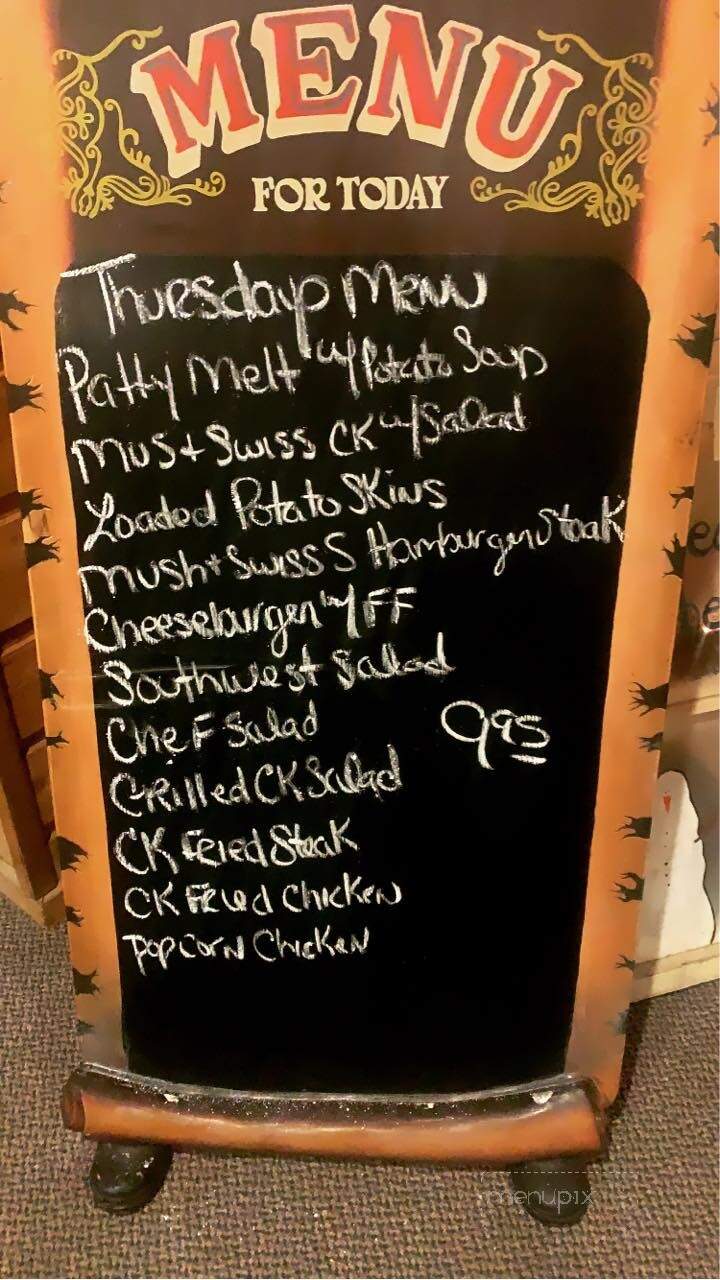 MENU
FOR TODAY
Thursday Menu
Patty Melt w/Potato Soup
Mus + Swiss CK w/Salad
Loaded Potato Skins
Mush + Swiss S Hamburger Steak
Cheeseburger w/FF
Southwest Salad
Chef Salad 9.95
Grilled CK Salad
CK Fried Steak
CK Fried Chicken
Popcorn Chicken
menupix